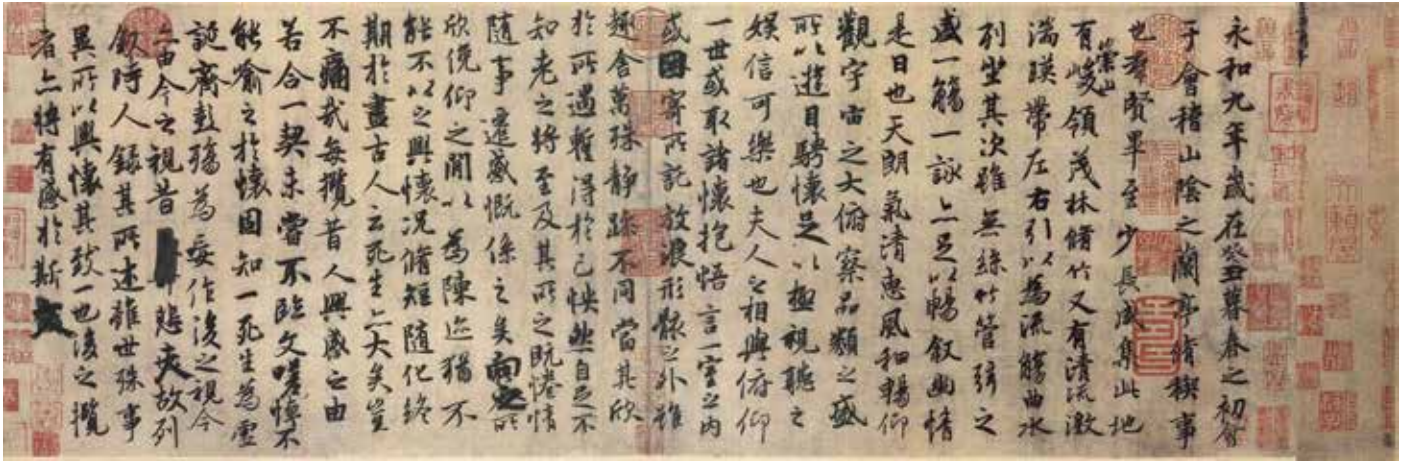 永和九年歲在癸丑暮春之初會
于會稽山陰之蘭亭脩禊事
也羣賢畢至少長咸集此地
有崇山峻領茂林脩竹又有清流激
湍暎帶左右引以為流觴曲水
列坐其次雖無絲竹管弦之
盛一觴一詠亦足以暢敘幽情
是日也天朗氣清惠風和暢仰
觀宇宙之大俯察品類之盛
所以遊目騁懷足以極視聽之
娛信可樂也夫人之相與俯仰
一世或取諸懷抱悟言一室之內
或因寄所託放浪形骸之外雖
趣舍萬殊靜躁不同當其欣
於所遇暫得於己怏然自足不
知老之將至及其所之既惓情
隨事遷感慨係之矣向之所
欣俛仰之閒以為陳迹猶不
能不以之興懷況脩短隨化終
期於盡古人云死生亦大矣豈
不痛哉每攬昔人興感之由
若合一契未嘗不臨文嗟悼不
能喻之於懷固知一死生為虛
誕齊彭殤為妄作後之視今
亦由今之視昔悲夫故列
敘時人錄其所述雖世殊事
異所以興懷其致一也後之攬
者亦將有感於斯文